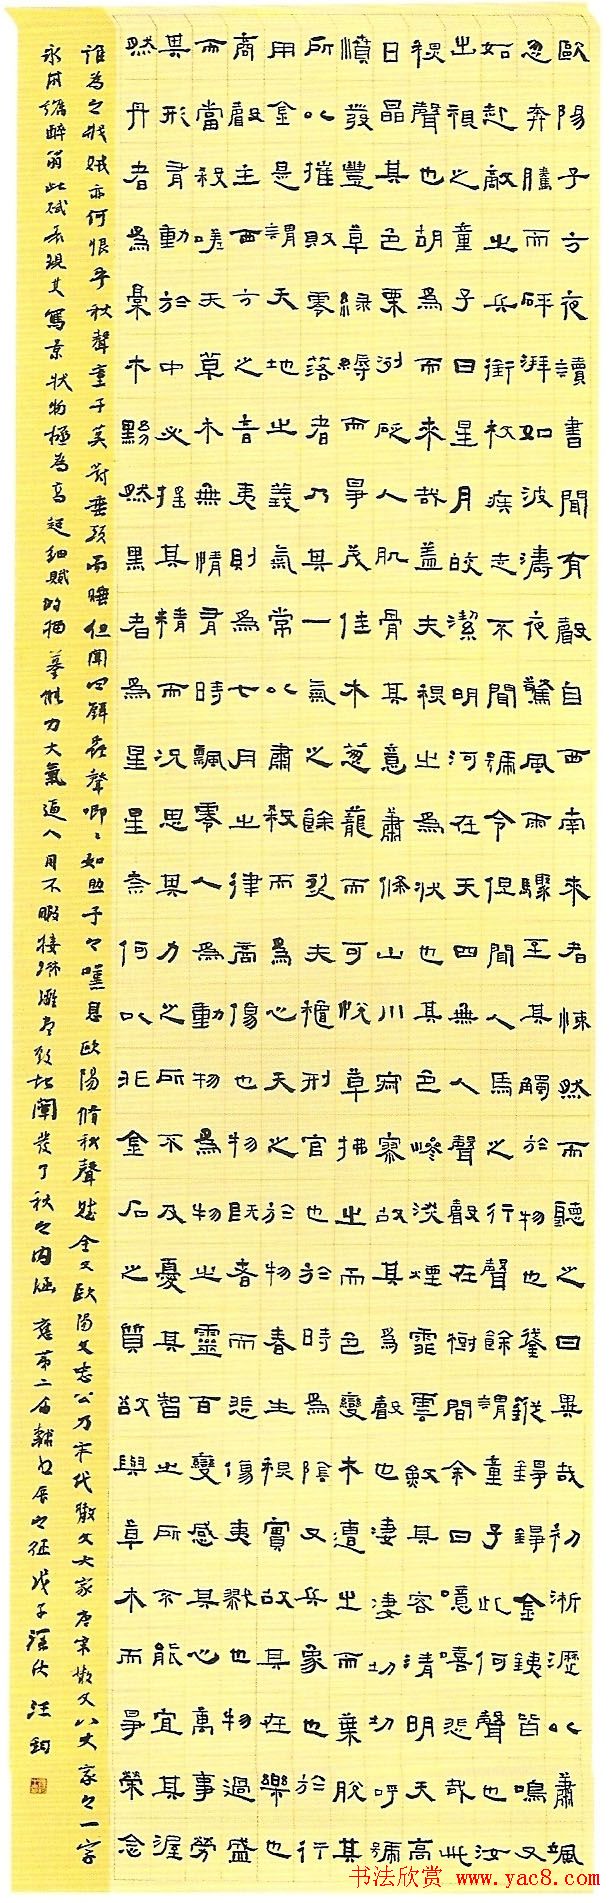 歐陽子方夜讀書聞有聲自西南來者悚然而聽之曰異哉初淅瀝以蕭颯
忽奔騰而砰湃如波濤夜驚風雨驟至其觸於物也鏦鏦錚錚金鐵皆鳴又
如赴敵之兵銜枚疾走不聞號令但聞人馬之行聲余謂童子此何聲也汝
出視之童子曰星月皎潔明河在天四無人聲聲在樹間余曰噫嘻悲哉此
秋聲也胡為而來哉蓋夫秋之為狀也其色慘淡煙霏雲斂其容清明天高
日晶其色栗冽砭人肌骨其意蕭條山川寂寥故其為聲也淒淒切切呼號
憤發豐草綠縟而爭茂佳木蔥蘢而可悅草拂之而色變木遭之而葉脫其
所以摧敗零落者乃其一氣之餘烈夫秋刑官也於時為陰又兵象也於行
用金是謂天地之義氣常以肅殺而為心天之於物春生秋實故其在樂也
商聲主西方之音夷則為七月之律商傷也物既老而悲傷夷戮也物過盛
而當殺嗟天草木無情有時飄零人為動物為物之靈百變感其心萬事勞
其形有動於中必搖其精而況思其力之所不及憂其智之所不能宜其渥
然丹者為槁木黟然黑者為星星奈何以非金石之質故與草木而爭榮念
誰為之戕賊亦何恨乎秋聲童子莫對垂頭而睡但聞四壁蟲聲唧唧如助予之嘆息歐陽修秋聲賦全文歐陽文忠公乃宋代散文大家唐宋散文八大家之一字
永叔號醉翁此賦表現其寫景狀物極為高超細膩的描摹能力大氣逼人目不暇接淋漓盡致地闡發了秋之內涵應第二屆展之征戊子汪
书法欣赏 www.yac8.com